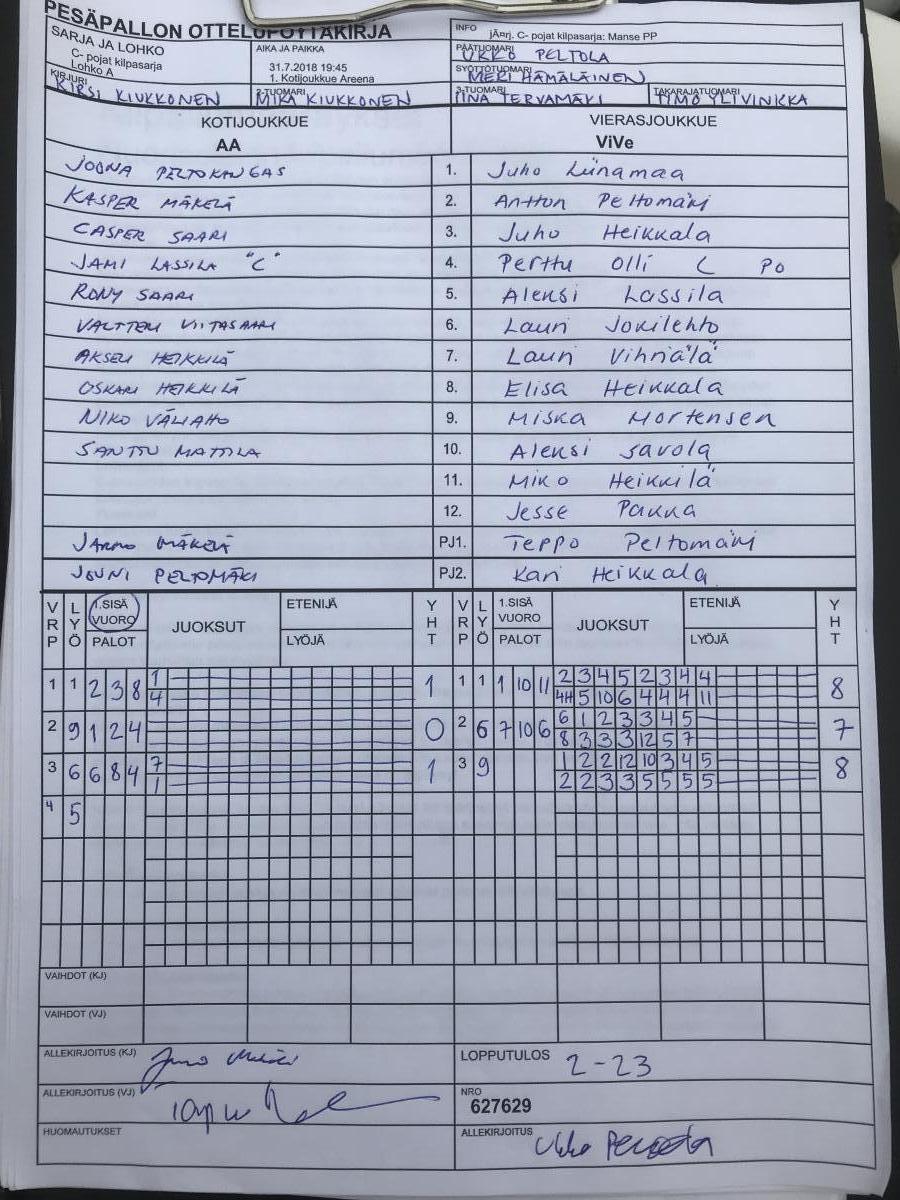 PESÄPALLON OTTELUPÖYTÄKIRJA
SARJA JA LOHKO
C- pojat kilpasarja
Lohko A
AIKA JA PAIKKA
31.7.2018 19:45
1. Kotijoukkue Areena
INFO
jÄnrj. C- pojat kilpasarja: Manse PP
PÄÄTUOMARI
UKKO PELTOLA
SYÖTTÖTUOMARI
MERI HÄMÄLÄINEN
KIRJURI
KIRSI KIUKKONEN
2-TUOMARI
MIKA KIUKKONEN
3-TUOMARI
IINA TERVAMÄKI
TAKARAJATUOMARI
TIMO YLIVINKKA
KOTIJOUKKUE
AA
VIERASJOUKKUE
ViVe
JOONA PELTOKANGAS 1. Juho Liinamaa
KASPER MÄKELÄ 2. Antton Peltomäki
CASPER SAARI 3. Juho Heikkala
JAMI LASSILA "C" 4. Perttu Olli C PO
RONY SAARI 5. Aleksi Lassila
VALTTERI VIITASAARI 6. Lauri Jokilehto
AKSELI HEIKKILÄ 7. Lauri Vihriälä
OSKARI HEIKKILÄ 8. Elisa Heikkala
NIKO VÄLIAHO 9. Miska Mortensen
SANTTU MATTILA 10. Aleksi Savola
11. Miko Heikkilä
12. Jesse Pakka
JARMO MÄKELÄ PJ1. Teppo Peltomäki
JOUNI PELTOMÄKI PJ2. Kari Heikkala
VRP LYÖ 1.SISÄ VUORO PALOT JUOKSUT ETENIJÄ LYÖJÄ YHT VRP LYÖ 1.SISÄ VUORO PALOT JUOKSUT ETENIJÄ LYÖJÄ YHT
1 1 2 3 8 1 1 1 1 1 10 11 2 3 4 5 2 3 4 4 8
4 4H 5 10 6 4 4 4 11
2 9 1 2 4 0 2 6 7 10 6 6 1 2 3 3 4 5 7
8 3 3 3 12 5 7
3 6 6 8 4 7 1 3 9 1 2 2 12 10 3 4 5 8
1 2 2 3 3 5 5 5 5
4 5
VAIHDOT (KJ)
VAIHDOT (VJ)
ALLEKIRJOITUS (KJ)
LOPPUTULOS 2-23
ALLEKIRJOITUS (VJ)
NRO
627629
HUOMAUTUKSET
ALLEKIRJOITUS Ukko Peltola